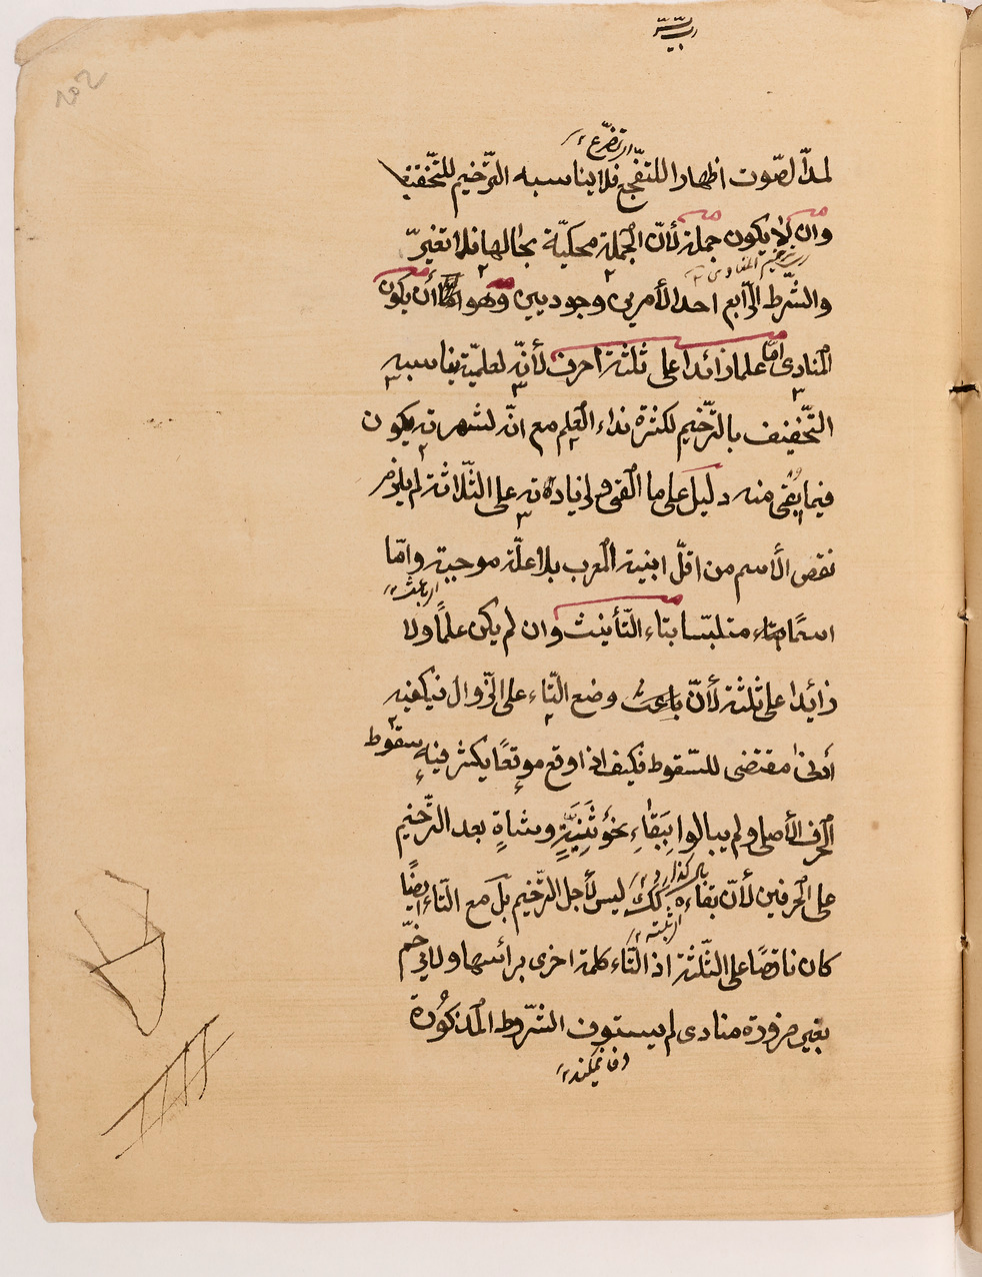 رب يسّر
از تضرّع
لمدّ الصّوت اظهارا للتفجّع فلا يناسبه الترّخيم للتّخفيف
وان لا يكون جملة لأنّ الجملة محكيّة بحالها فلا تغيّر
والشّرط الرّابع احد الأمرين وجوديين وهو امّا أن يكون
المنادى امّا علما زائدا على ثلثة احرف لأنّه لعلميّة يناسبه
التّخفيف بالترّخيم لكثرة نداء العلم مع انّه لشهرته يكون
فيما بقى منه دليل على ما القى ولزيادته على الثّلاثة لم يلزم
نقص الأسم من اقلّ ابنية المعرب بلا علّة موجبة وامّا
اسمًا متلبّسا بتاء التّأنيث وان لم يكن علمًا ولا
زائدا على ثلثة لأنّ باعث وضع التّاء على الزّوال فيكفيه
أدنى مقتضى للسّقوط فكيف اذا وقع موقعًا يكثر فيه سقوط
الحرف الأصلي ولم يبالوا ببقاء نحو ثبةٍ وشاةٍ بعد الترّخيم
على الحرفين لأنّ بقاءه كذلك ليس لأجل الترّخيم بل مع التّاء ايضًا
كان ناقصًا على الثّلثة اذ التّاء كلمة اخرى برأسها ولا يرخّم
بغير ضرورة منادى لم يستوف الشّروط المذكورة